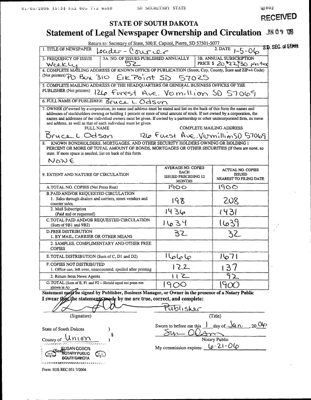 SD SECRETARY STATE
RECEIVED
STATE OF SOUTH DAKOTA
Statement of Legal Newspaper Ownership and Circulation
JAN 09 '06
Return to: Secretary of State, 500 E. Capitol, Pierre, SD 57501-5077
1. TITLE OF NEWSPAPER Leader-Courier
2. DATE 1-5-06
3. FREQUENCY OF ISSUE Weekly
3A. NO. OF ISSUES PUBLISHED ANNUALLY 52
3B. ANNUAL SUBSCRIPTION PRICE $
4. COMPLETE MAILING ADDRESS OF KNOWN OFFICE OF PUBLICATION (Street, City, County, State and ZIP+4 Code)
(Not printer) PO Box 310 Elk Point SD 57025
5. COMPLETE MAILING ADDRESS OF THE HEADQUARTERS OR GENERAL BUSINESS OFFICES OF THE
PUBLISHER (Not printer) 126 Forest Ave. Vermillion SD 57069
6. FULL NAME OF PUBLISHER: Bruce L. Odson
7. OWNER (If owned by a corporation, its name and address must be stated and list on the back of this form the names and
addresses of stockholders owning or holding 1 percent or more of total amount of stock. If not owned by a corporation, the
names and address of the individual owners must be given. If owned by a partnership or other unincorporated firm, its name
and address, as well as that of each individual must be given.
FULL NAME COMPLETE MAILING ADDRESS
Bruce L. Odson 126 Forest Ave. Vermillion SD 57069
8. KNOWN BONDHOLDERS, MORTGAGES, AND OTHER SECURITY HOLDERS OWNING OR HOLDING 1
PERCENT OR MORE OF TOTAL AMOUNT OF BONDS, MORTGAGES OR OTHER SECURITIES (If there are none, so
state. If more space is needed, list on back of this form
None
9. EXTENT AND NATURE OF CIRCULATION
AVERAGE NO. COPIES EACH ISSUED PRECEDING 12 MONTHS
ACTUAL NO. COPIES ISSUED NEAREST TO FILING DATE
A. TOTAL NO. COPIES (Net Press Run) 1900 1900
B. PAID AND/OR REQUESTED CIRCULATION
1. Sales through dealers and carriers, street vendors and
counter sales. 198 208
2. Mail Subscription
(Paid and or requested) 1436 1431
C. TOTAL PAID AND/OR REQUESTED CIRCULATION
(Sum of 9B1 and 9B2) 1634 1639
D. FREE DISTRIBUTION
1. BY MAIL, CARRIER OR OTHER MEANS 32 32
2. SAMPLES, COMPLIMENTARY AND OTHER FREE
COPIES
E. TOTAL DISTRIBUTION (Sum of C, D1 and D2) 1666 1671
F. COPIES NOT DISTRIBUTED
1. Office use, left over, unaccounted, spoiled after printing 122 137
2. Return from News Agents 112 92
G. TOTAL (Sum of E, F1 and F2 – Should equal net press run
shown in A) 1900 1900
Statement must be signed by Publisher, Business Manager, or Owner in the presence of a Notary Public
I swear that the statements made by me are true, correct, and complete:
Publisher
(Signature) (Title)
State of South Dakota )
) §
County of Union )
Sworn to before me this day of Jan 2006
Susan Odson
Notary Public
My commission expires: 6-21-06
SUSAN ODSON
NOTARY PUBLIC
SOUTH DAKOTA
Form: SOS REC 051 7/2004